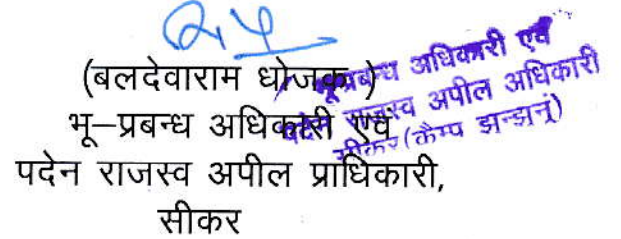 (बलदेवाराम धोजक)
भू–प्रबन्ध अधिकारी एवं
पदेन राजस्व अपील प्राधिकारी,
सीकर
भूप्रबन्ध अधिकारी एवं
पदेन राजस्व अपील अधिकारी
सीकर (कैम्प झुन्झुनूं)